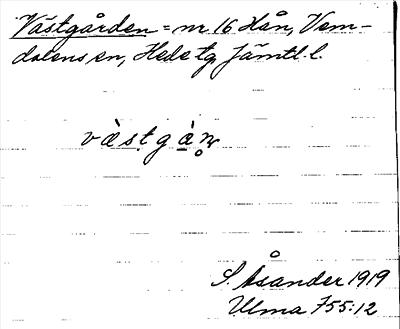 Västgården = nr 16 Hån, Vem-
dalens sn, Hede tg, Jämtl. l.
vàstgàn̥
S. Åsander 1919
Ulma 755:12